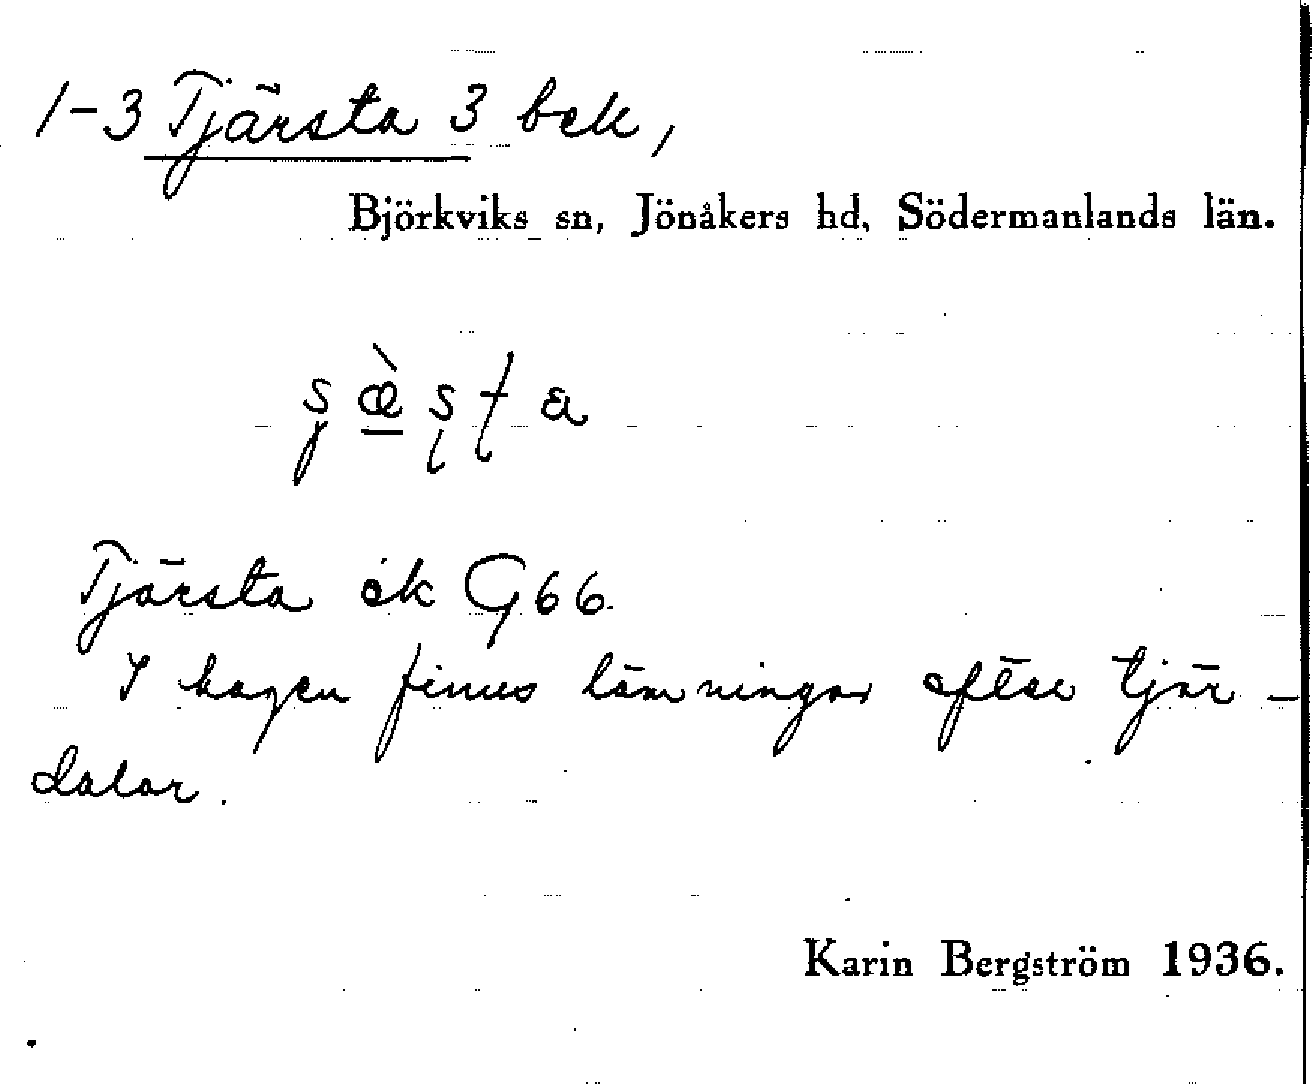 1-3 Tjärsta 3 bek,
Björkviks sn, Jönåkers hd, Södermanlands län.
Tjärsta ek G66
I hagen finns lämningar efter tjär-
dalar.
Karin Bergström 1936.